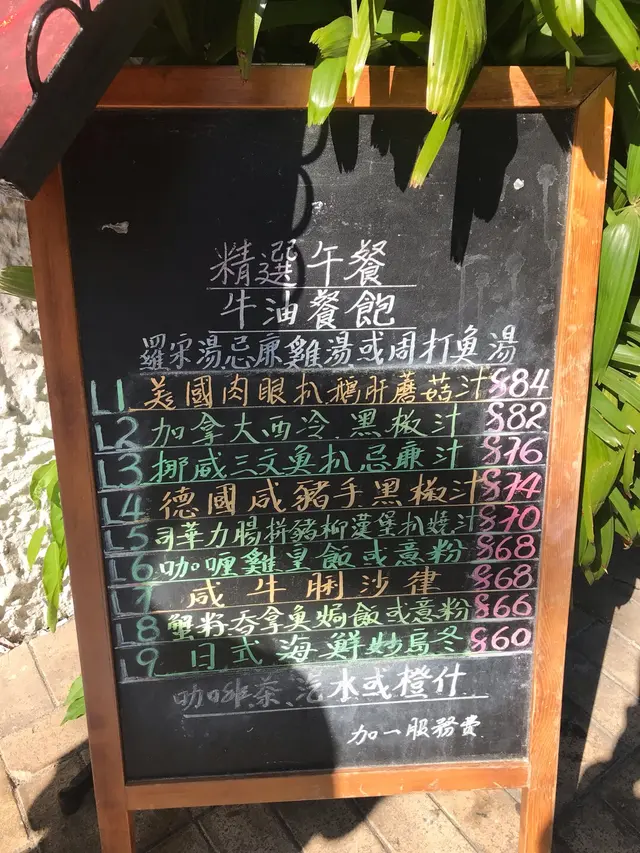 精選午餐
牛油餐飽
羅宋湯忌廉雞湯或周打魚湯
L1 美國肉眼扒鵝肝蘑菇汁 $84
L2 加拿大西冷黑椒汁 $82
L3 挪威三文魚扒忌廉汁 $76
L4 德國咸豬手黑椒汁 $74
L5 司華力腸拼豬柳漢堡扒燒汁 $70
L6 咖喱雞皇飯或意粉 $68
L7 咸牛脷沙律 $68
L8 蟹籽吞拿魚焗飯或意粉 $66
L9 日式海鮮炒烏冬 $60
咖啡茶汽水或橙什
加一服務費